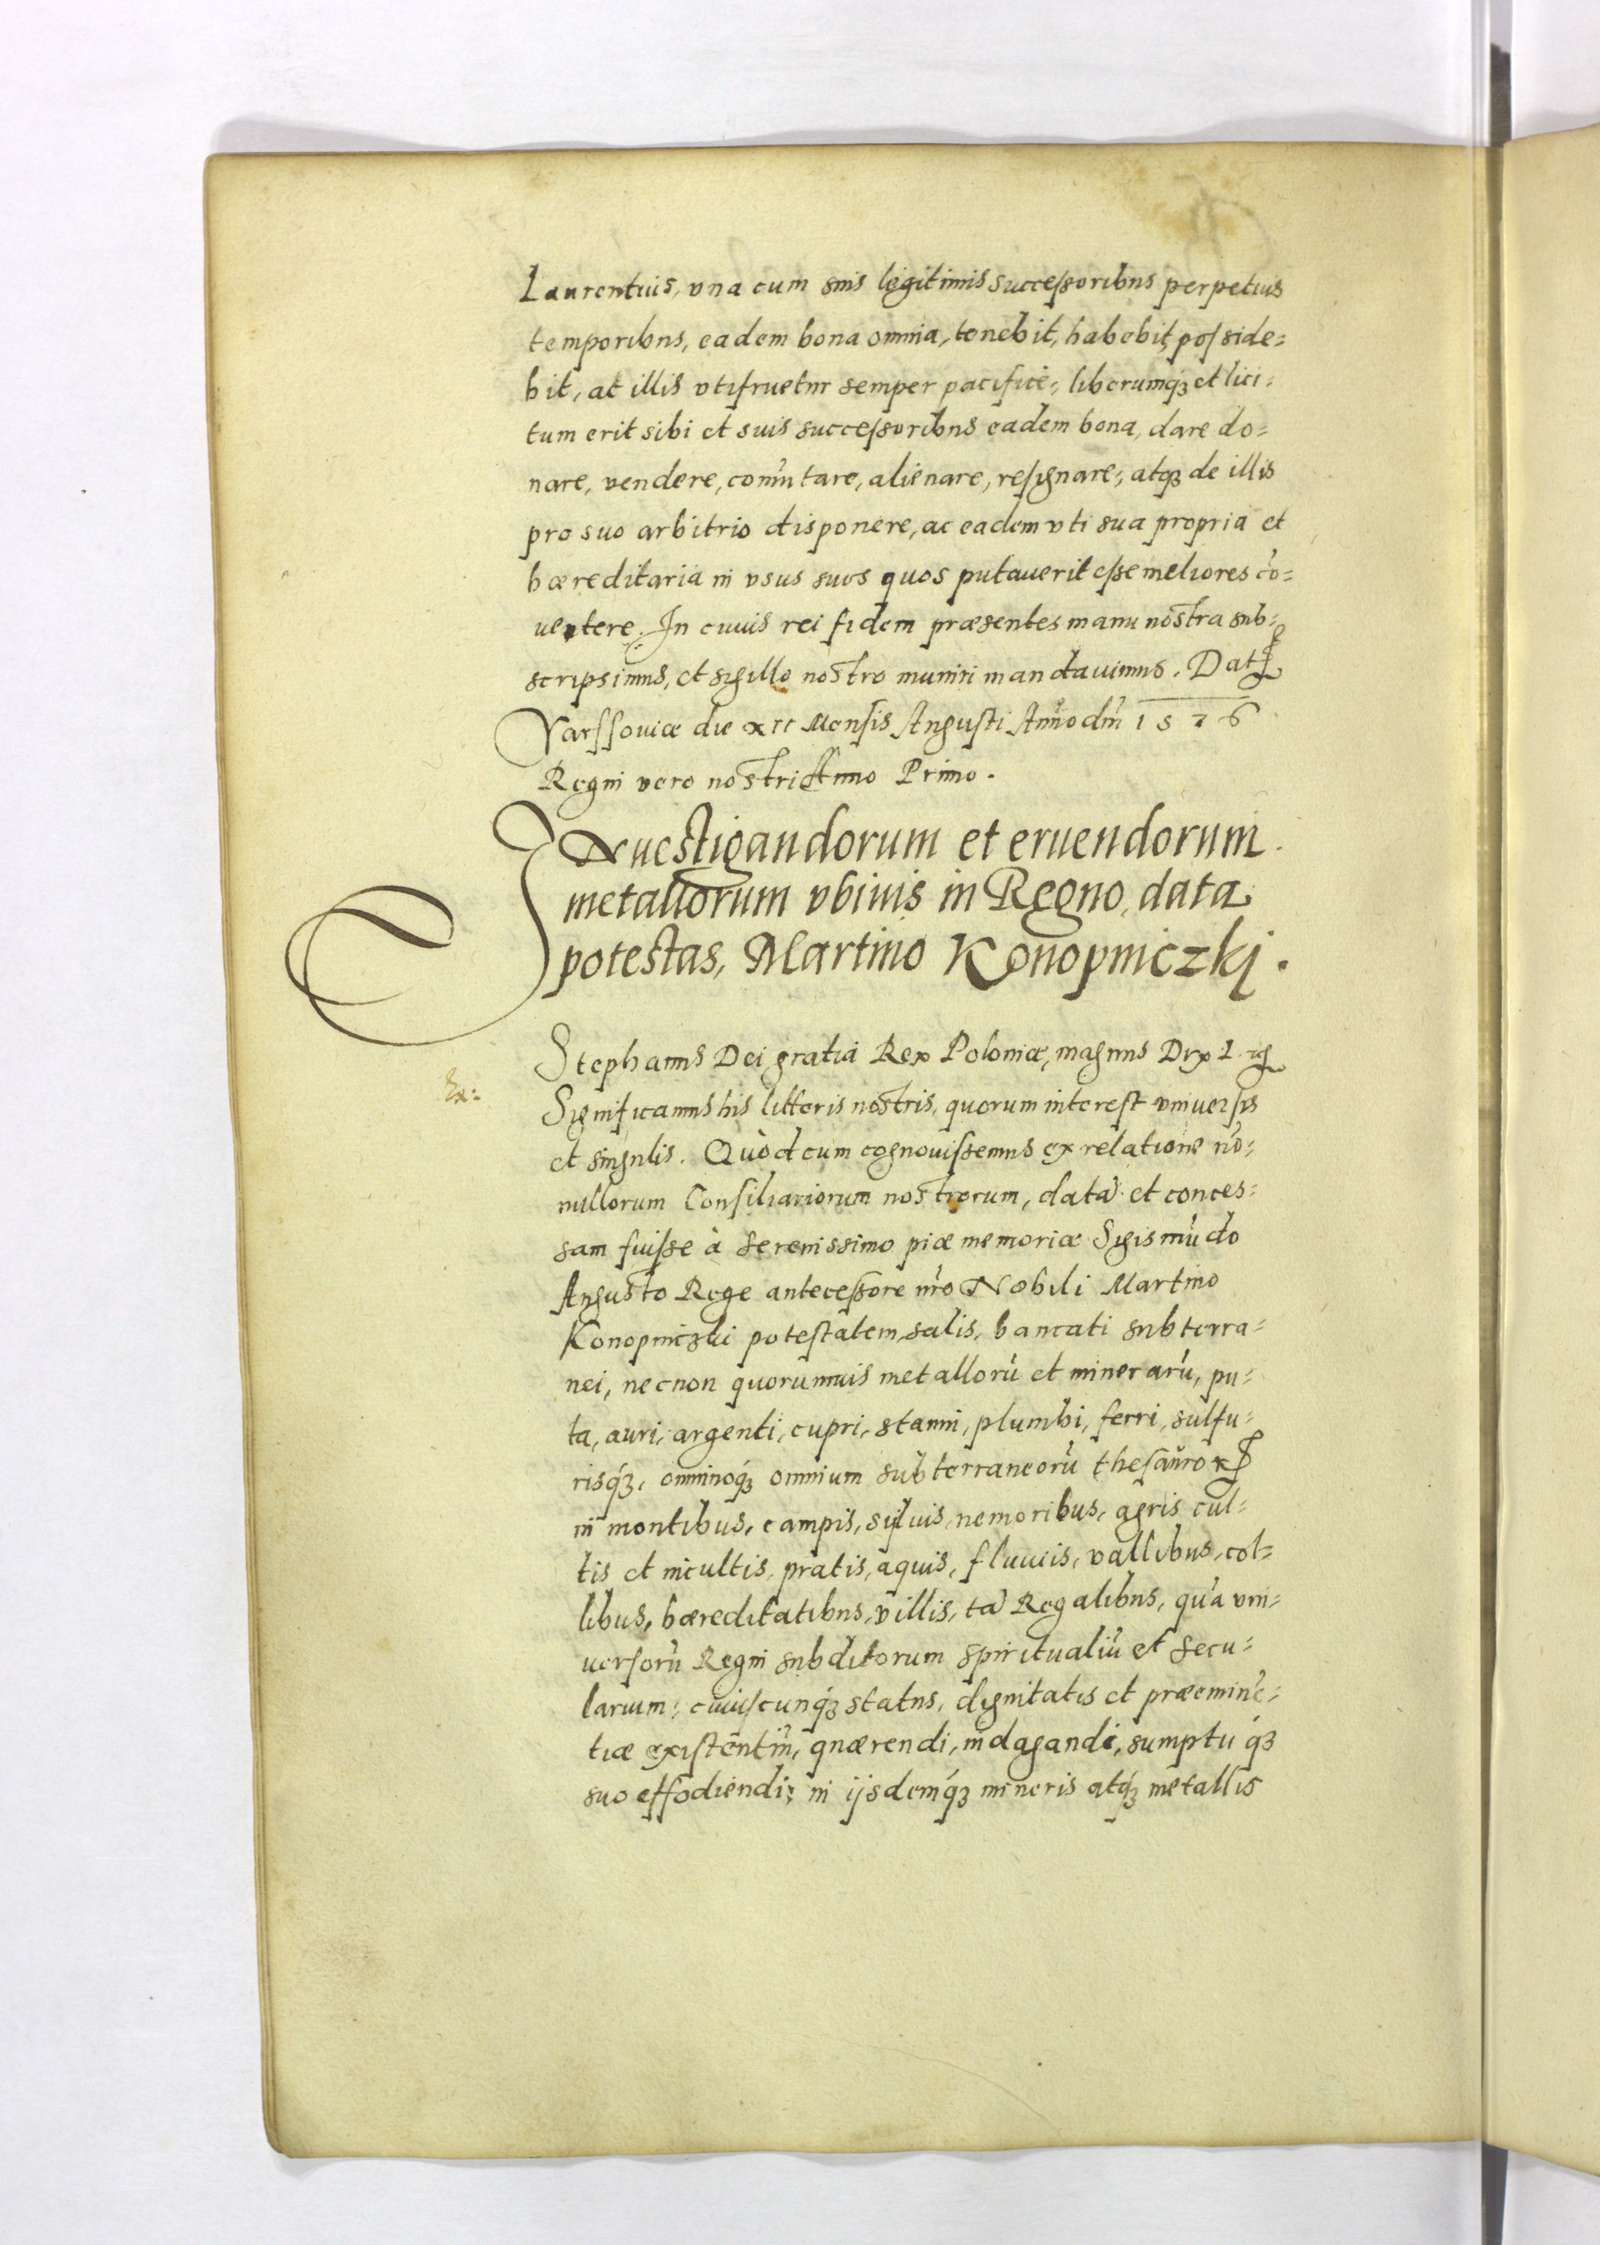 Laurentius, vna cum suis legitimis successoribus perpetuis
temporibus, eadem bona omnia, tenebit, habebit, posside=
bit, at illis vtifruetur semper pacificè, liberumq́ꝫ et lici=
tum erit sibi et suis successoribus eadem bona, dare do=
nare, vendere, com̃utare, alienare, resignare, atqꝫ de illis
pro suo arbitrio disponere, ac eadem vti sua propria et
hæreditaria in vsus suos quos putauerit esse meliores cõ=
uertere. In cuius rei fidem præsentes manu nostra sub=
scripsimus, et sigillo nostro muniri mandauimus. Dat
Varssouiæ die XII Mensis Augusti Anno dñi 1576
Regni vero nostri Anno Primo.
INuestigandorum et eruendorum
metallorum vbiuis in Regno, data
potestas, Martino Konopniczki.
Stephanus Dei gratia Rex Poloniæ, magnus Dux L.
Ex:
Significamus his litteris nostris, quorum interest vniuersis
et singulis. Quòd cum cognouissemus ex relatione nõ=
nullorum Consiliariorum nostrorum, datã et conces=
sam fuisse à serenissimo piæ memoriæ Sigismũdo
Augusto Rege antecessore nr̃o Nobili Martino
Konopniczki potestatem, salis, bancati subterra=
nei, necnon quorumuis metallorũ et minerarũ, pu=
ta, auri, argenti, cupri, stanni, plumbi, ferri, sulfu=
risq́ꝫ, omninoq́ꝫ omnium subterraneorũ thesauroꝝ
in montibus, campis, syluis, nemoribus, agris cul=
tis et incultis, pratis, aquis, fluuiis, vallibus, col=
libus, hæreditatibus, villis, tã Regalibus, quã vni=
uersorũ Regni subditorum spiritualiũ et secu=
larium, cuiuscunq́ꝫ status, dignitatis et præeminẽ=
tiæ existentiũ, quærendi, indagandi, sumptuq́ꝫ
suo effodiendi; in ijsdemq́ꝫ mineris atq́ꝫ metallis